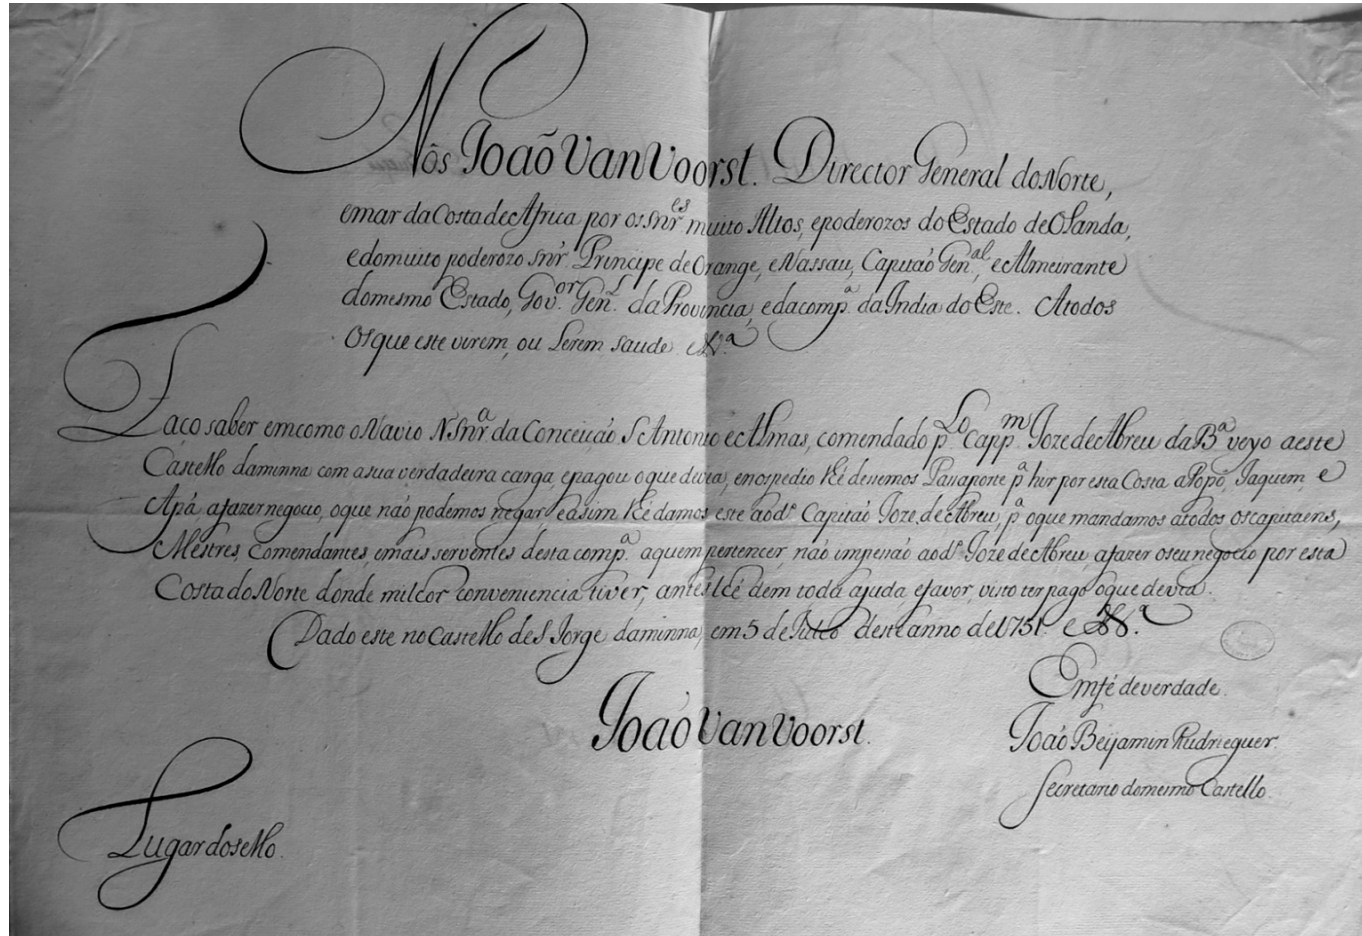 Nós Joaõ Van Voorst. Director General do Norte,
e mar da Costa de Africa por os Snr.es muito Altos, e poderozos do Estado de Olanda,
e do muito poderozo Snr. Principe de Orange, e Nassau, Capitaõ Gen.al, e Almeirante
do mesmo Estado, Gov.or Gen.l da Provincia, e da comp.a da India do Este. Atodos
os que este virem, ou Lerem saude &.a
Faço saber em como o Navio N. Snr.a da Conceiçaõ S Antonio e Almas, comendado p.lo Capp.m Joze de Abreu da B.a veyo a este
Castello da minna com a sua verdadeira carga, e pagou o que devia, e nos pedio lhé dessemos Passaporte p.a hir por esta Costa a Popó, Jaquem, e
Apá a fazer negocio, o que naõ podemos negar, e asim lhé damos este ao d.o Capitaõ Joze de Abreu, p.a o que mandamos a todos os capitaens,
Mestres, Comendantes, e mais serventes desta comp.a a quem pertencer, naõ impessaõ ao d.o Joze de Abreu, a fazer o seu negocio por esta
Costa do Norte donde milhor conveniencia tiver, antes lhé dem toda ajuda e favor, visto ter pago o que devia.
Dado este no Castello de S Jorge da minna, em 5 de Julho deste anno de 1751. &.a
Em fé de verdade.
Joaõ Van Voorst.
Joaõ Beijamin Rudrieguer.
Secretario do mesmo Castello.
Lugar do sello.